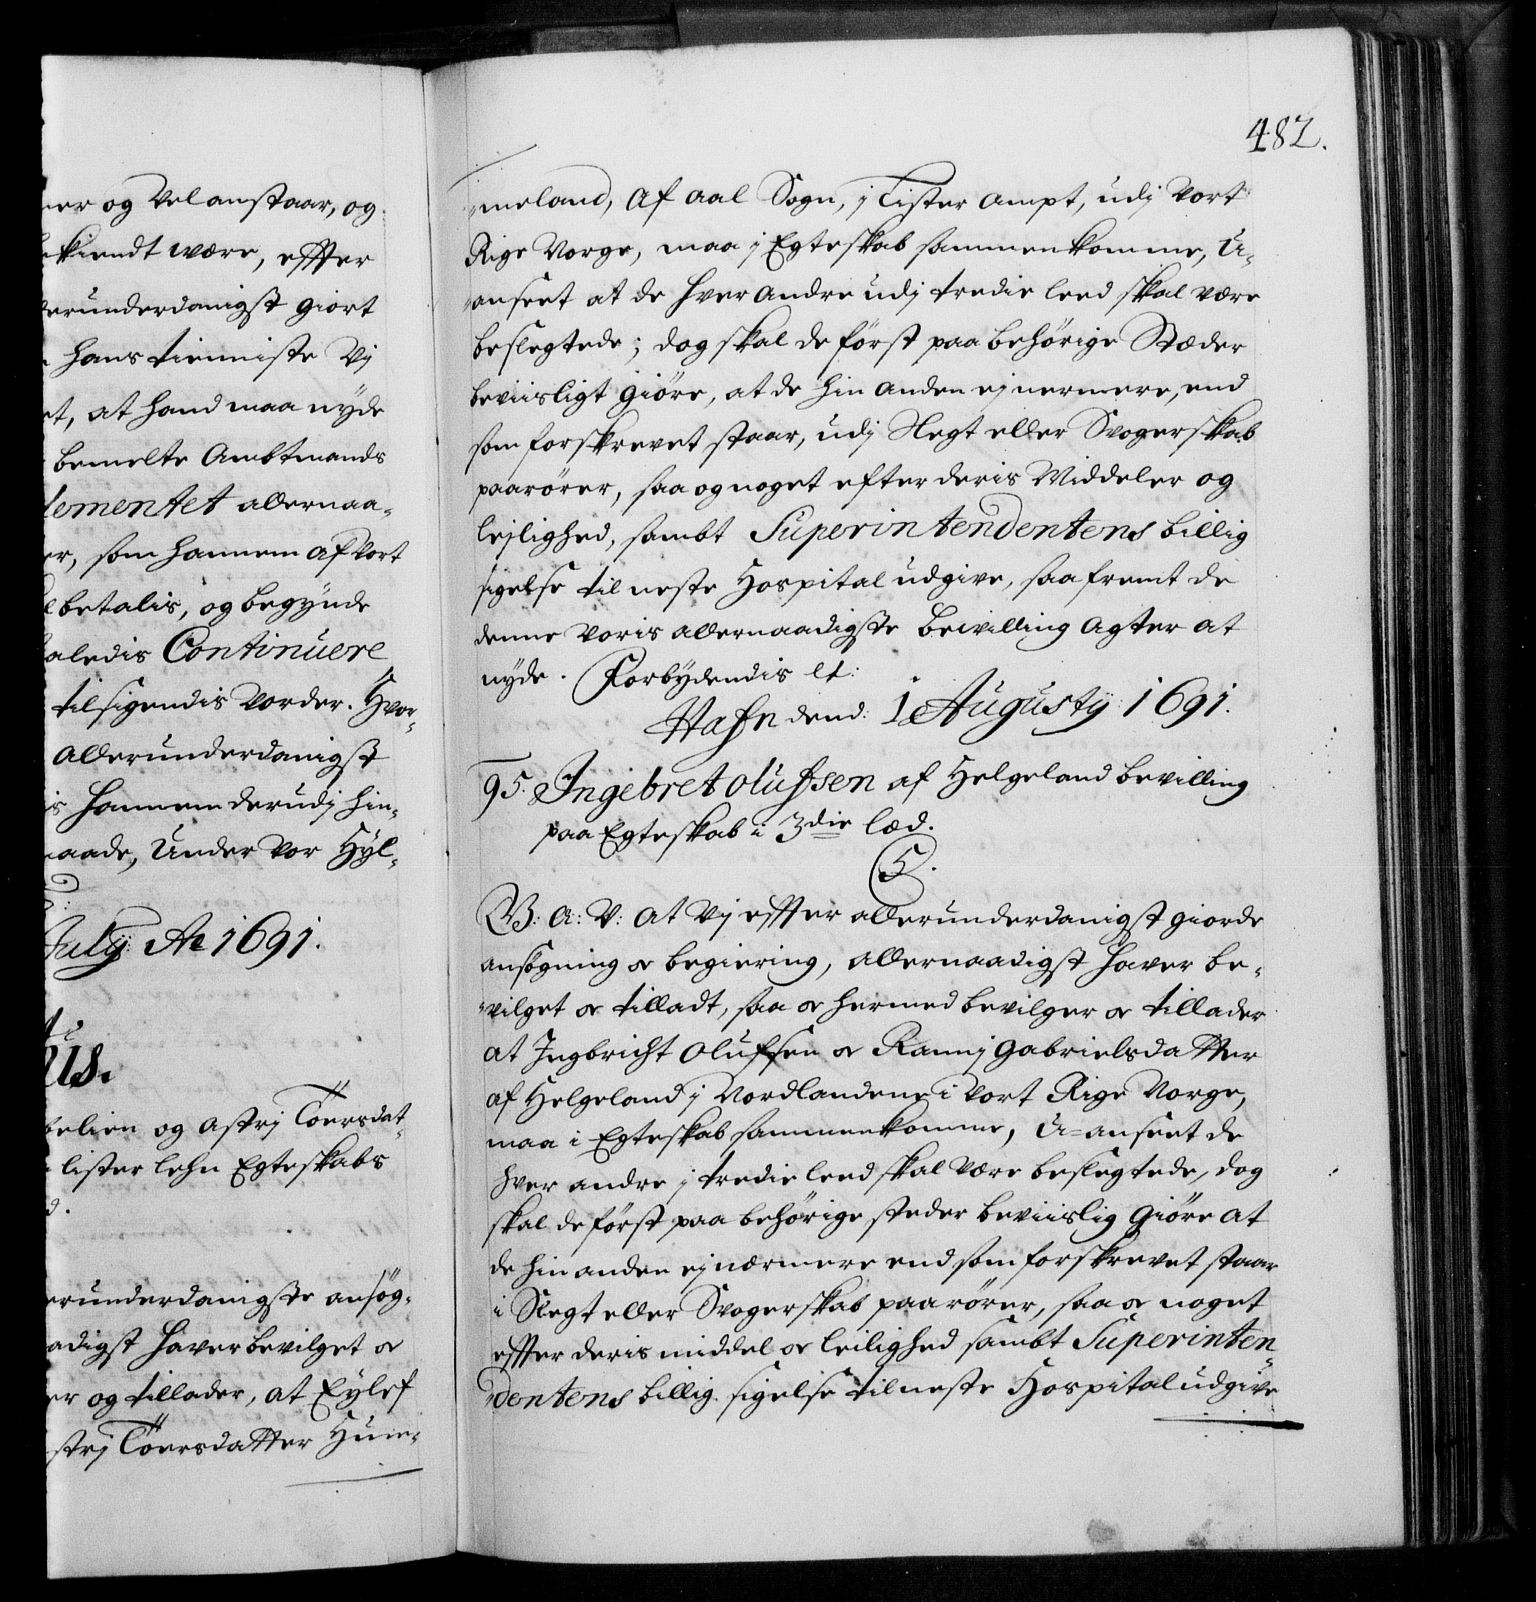 er og Vel anstaar, og
kiendt være, effter
erunderdanigst giort
hans tienniste Vj
et, at hand maa nyde
bemelte Ambtmands
lementet allernaa-
er, som hannem af Vort
betalis, og begynde
aledis Continuere
tilsigendis vorder. Hvor-
allerunderdanigst
is hannem derudj hin-
naade, Under Vor Hyl-
July Ao 1691.
us.
belien og Astrj Toersdat-
lister lehn Egteskabs
d.
erunderdanigste ansög-
adigst haver bevilget og
er og tillader, at Eylef
strj Toersdatter Hum-
482.
meland, af Aal Sogn, j Lister Ampt, udj Vort
Rige Norge, maa j Egteskab sammenkomme, U-
anseet at de hver andre udj tredie leed skal være
beslegtede; dog skal de först paa behörige Stæder
beviisligt giöre, at de hin anden ej nermere, end
som forskrevet staar, udj Slegt eller Svogerskab
paarörer, saa og noget efter deris Middeler og
lejlighed, sambt Superintendentens billig
sigelse til neste Hospital udgive, saafremt de
denne Voris allernaadigste bevilling agter at
nyde. Forbydendis et:
Hafn dend: 1 Augustij 1691.
95. Ingebret olufsen af Helgeland bevilling
paa Egteskab i 3die læd.
5.
V: A: V: at Vj effter allerunderdanigst giorde
ansögning og begiering, allernaadigst haver be-
vilget og tilladt, saa og hermed bevilger og tillader
at Ingbricht Olufsen og Rannj Gabrielsdatter
af Helgeland j Nordlandene i Vort Rige Norge,
maa i Egteskab sammenkomme, U-anseet de
hver andre j tredie leed skal være beslegtede, dog
skal de först paa behörige steder beviislig giöre at
de hinanden ej nærmere end som forskrevet staar
i Slegt eller Svogerskab paarörer, saa og noget
effter deris middel og leilighed sambt Superinten
dentens billig sigelse til neste Hospital udgive